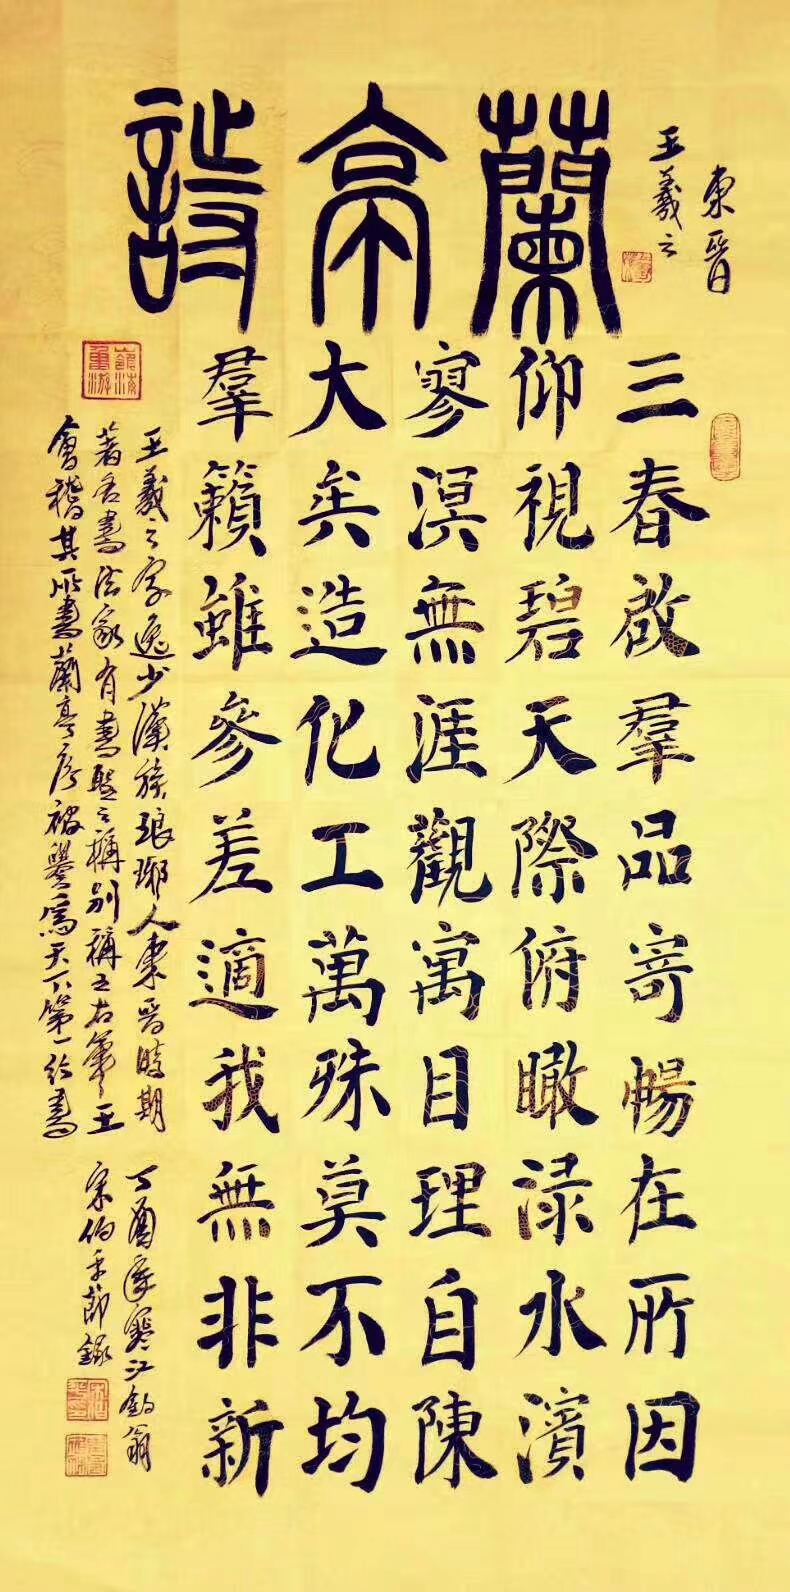 東晉
王羲之
蘭亭詩
三春啟羣品寄暢在所因
仰視碧天際俯瞰淥水濱
寥溟無涯觀寓目理自陳
大矣造化工萬殊莫不均
羣籟雖參差適我無非新
王羲之字逸少漢族琅琊人東晉時期
著名書法家有書聖之稱別稱王右軍王
會稽其所書蘭亭序被譽為天下第一行書
丁酉年寒江釣翁
宋伯節錄